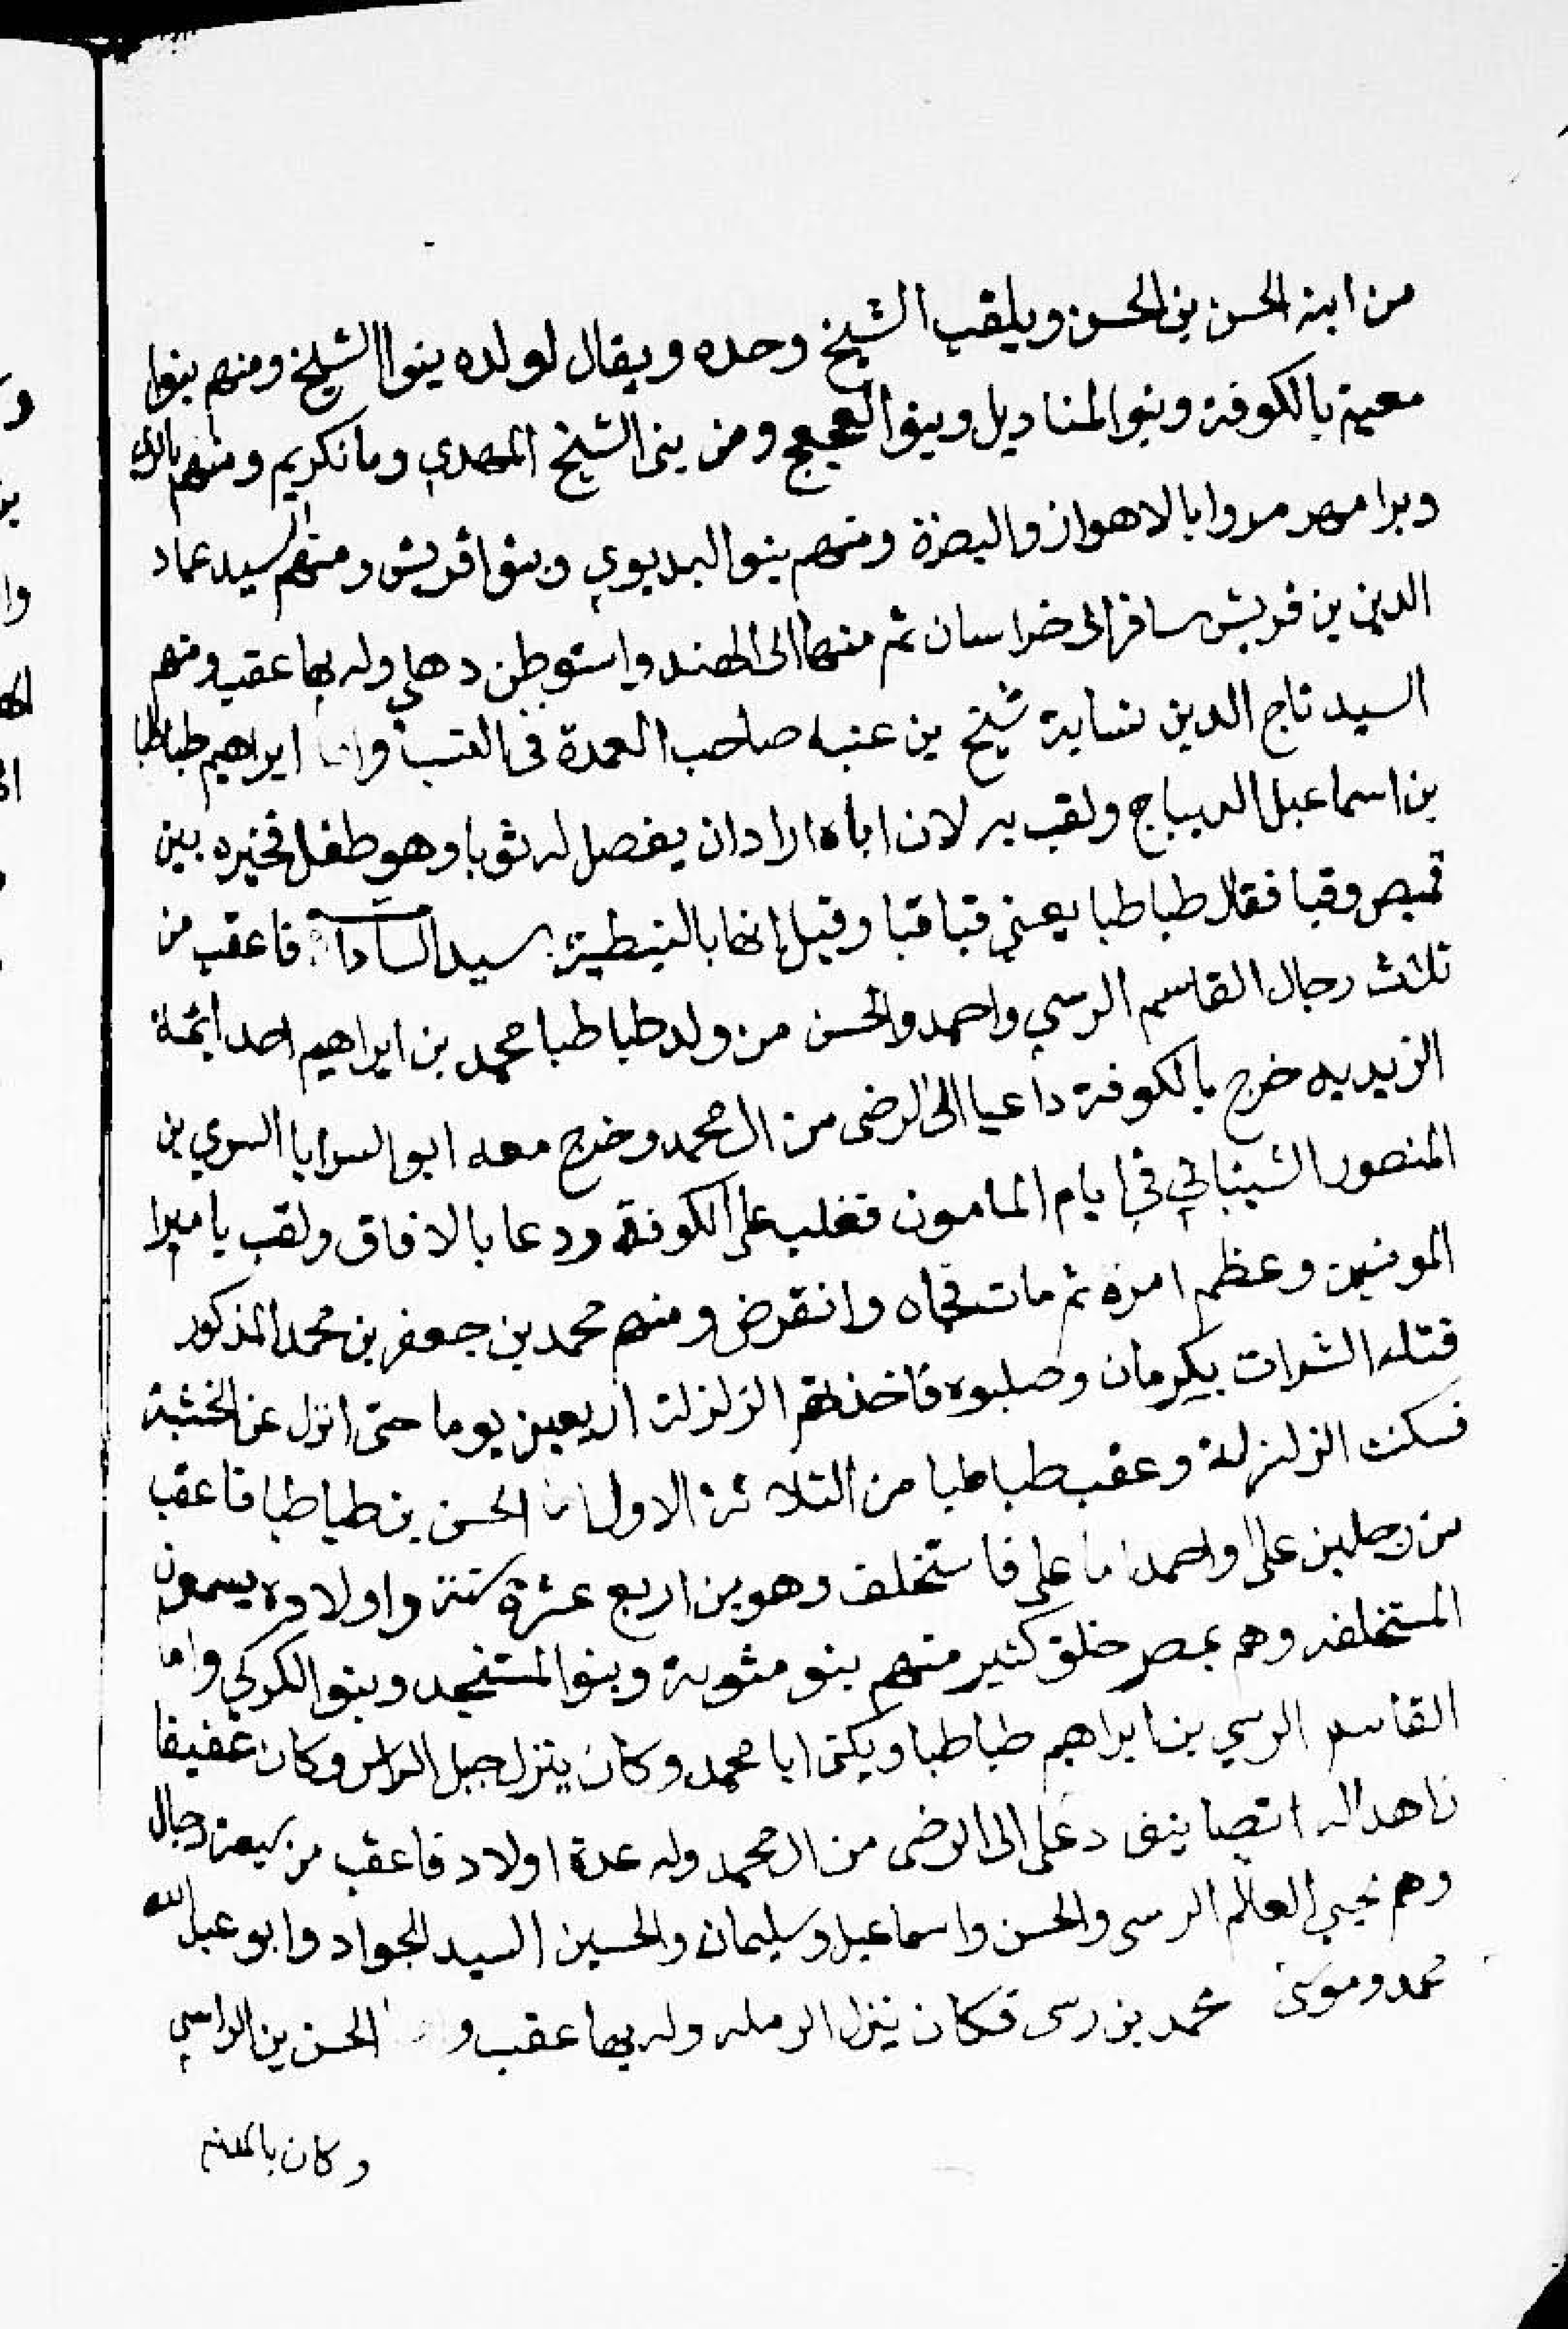 من ابنه الحسن بن الحسن ويلقب الشيخ وحده ويقال لولده بنوا الشيخ ومنهم بنوا
معية بالكوفة وبنوا المناديل وبنوا العجعج ومن بنى الشيخ المهدي ومانكريم ومنهم
وبرامهرمروا بالاهواز والبصرة ومنهم بنوا البديوي وبنوا قريش ومنهم السيد عماد
الدين بن قريش سافر الى خراسان ثم منها الى الهند واستوطن دهلي وله بها عقب ومنهم
السيد تاج الدين نسابة شيخ بن عنبه صاحب العمدة فى النسب واما ابراهيم طباطبا
بن اسماعيل الديباج ولقب به لان اباه اراد ان يفصل له ثوبا وهو طفل فخيره بين
قميص وقبا فقال طباطبا يعني قبا قبا وقيل انها بالنبطية سيد السادات فاعقب من
ثلاث رجال القاسم الرسي واحمد والحسن من ولد طباطبا محمد بن ابراهيم احد ائمة
الزيديه خرج بالكوفة داعيا الى الرضى من ال محمد وخرج معه ابو السرايا السري بن
المنصور الشيباني في ايام المامون فغلب على الكوفة ودعا بالافاق ولقب بامير ا
المومنين وعظم امره ثم مات فجاه وانقرض ومنهم محمد بن جعفر بن محمد المذكور
قتله الشرات بكرمان وصلبوه فاخذتهم الزلزلة اربعين يوما حتى انزل عن الخشبة
فسكنت الزلزلة وعقب طباطبا من الثلاثة الاول الحسن بن طباطبا فاعقب
من رجلين على واحمد اما على فاستخلف وهو بن اربع عشرة سنة واولاده يسمون
المستخلفه وهم بمصر خلق كثير منهم بنو مثوبة وبنو المستنجد وبنو الكركي واما
القاسم الرسي بن ابراهيم طباطبا ويكنى ابا محمد وكان ينزل جبل الراس وكان عفيفا
زاهدا له اتصانيف دعى الى الرضى من ال محمد وله عدة اولاد فاعقب من سبعة رجال
وهم يحيي العالم الرسى والحسن واسماعيل وسليمان والحسين السيد الجواد وابو عبد الله
محمد وموسى محمد بن رسى فكان ينزل الرمله وله بها عقب و الحسن بن الراسي
وكان بالمدينه